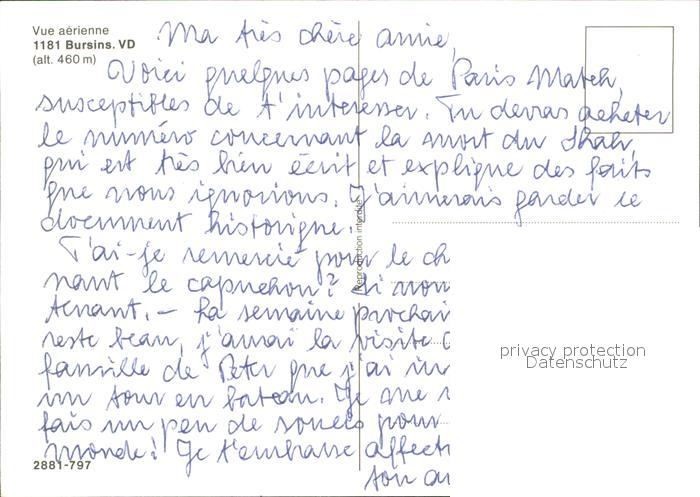 Vue aérienne
1181 Bursins. VD
(alt. 460 m)
Ma très chère amie,
Voici quelques pages de Paris Match,
susceptibles de t'intéresser. Tu devras acheter
le numéro concernant la mort du Shah,
qui est très bien écrit et explique des faits
que nous ignorions. J'aimerais garder ce
document historique.
T'ai-je remercié pour le ch
nant le capuchon? Si non
tenant. – La semaine prochai
reste beau, j'aurai la visite
famille de Peter que j'ai in
un tour en bateau. Je me
fais un peu de soucis pour
monde! Je t'embrasse affect
ton
Reproduction interdite
2881-797
privacy protection
Datenschutz